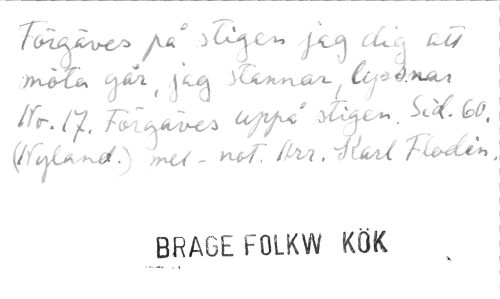 Förgäves på stigen jag dig att
möta går, jag stannar, lyssnar
No. 17. Förgäves uppå stigen. Sid. 60.
(Nyland.) mel - not. Arr. Karl Flodin.
BRAGE FOLKW KÖK